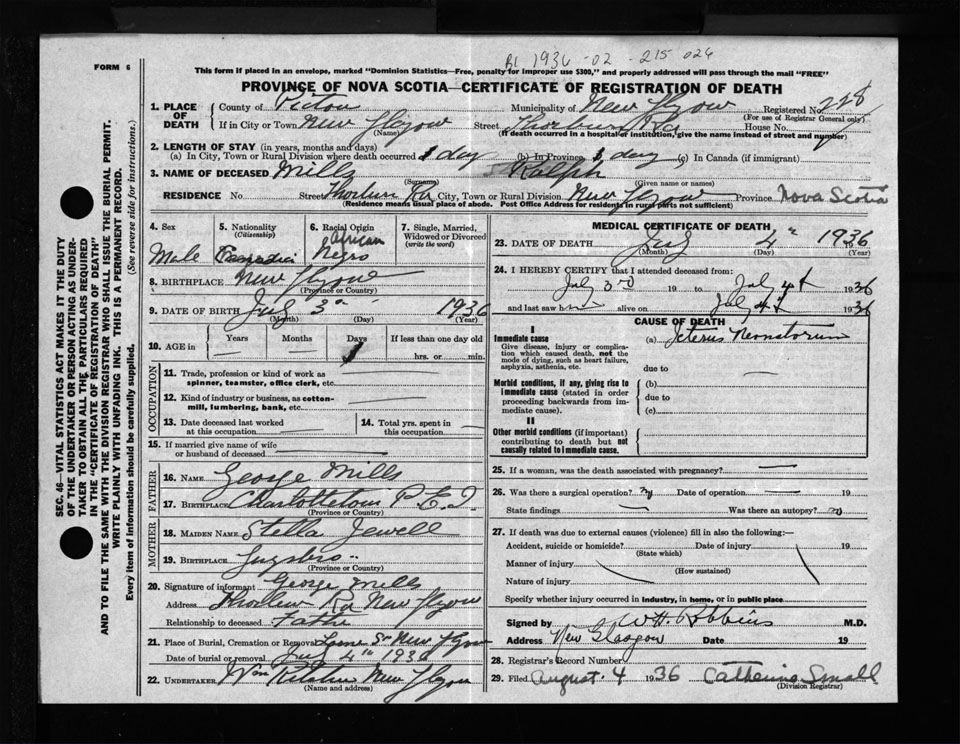 BL 1936-02-215026
FORM 6
This form if placed in an envelope, marked "Dominion Statistics—Free, penalty for improper use $300," and properly addressed will pass through the mail "FREE"
PROVINCE OF NOVA SCOTIA—CERTIFICATE OF REGISTRATION OF DEATH
1. PLACE OF DEATH County of Pictou Municipality of New Glgow Registered No. 228
(For use of Registrar General only)
If in City or Town New Glgow Street Thorburn Rd House No.
(Name) (If death occurred in a hospital or institution, give the name instead of street and number)
2. LENGTH OF STAY (in years, months and days)
(a) In City, Town or Rural Division where death occurred 1 day (b) In Province 1 day (c) In Canada (if immigrant)
3. NAME OF DECEASED Mills Ralph
(Surname) (Given name or names)
RESIDENCE No Street Thorburn Rd City, Town or Rural Division New Glgow Province Nova Scotia
(Residence means usual place of abode. Post Office Address for residents in rural parts not sufficient)
4. Sex 5. Nationality (Citizenship) 6. Racial Origin 7. Single, Married, Widowed or Divorced (write the word)
African
Male Canadian Negro
8. BIRTHPLACE New Glgow
(Province or Country)
9. DATE OF BIRTH July 3rd 1936
(Month) (Day) (Year)
10. AGE in Years Months Days If less than one day old
1 hrs. or min.
OCCUPATION
11. Trade, profession or kind of work as spinner, teamster, office clerk, etc.
12. Kind of industry or business, as cotton-mill, lumbering, bank, etc.
13. Date deceased last worked at this occupation 14. Total yrs. spent in this occupation
15. If married give name of wife or husband of deceased
FATHER
16. NAME George Mills
17. BIRTHPLACE Charlottetown P.E.I.
(Province or Country)
MOTHER
18. MAIDEN NAME Stella Jewell
19. BIRTHPLACE
(Province or Country)
20. Signature of informant George Mills
Address Thorburn Rd New Glgow
Relationship to deceased Father
21. Place of Burial, Cremation or Removal St New Glgow
Date of burial or removal July 4th 1936
22. UNDERTAKER Wm New Glgow
(Name and address)
MEDICAL CERTIFICATE OF DEATH
23. DATE OF DEATH July 4th 1936
(Month) (Day) (Year)
24. I HEREBY CERTIFY that I attended deceased from
July 3rd 19 to July 4th 1936
and last saw h alive on July 4th 1936
CAUSE OF DEATH
I
Immediate cause (a) Icterus Neonatorum
Give disease, injury or complication which caused death, not the mode of dying, such as heart failure, asphyxia, asthenia, etc.
due to
Morbid conditions, if any, giving rise to immediate cause (stated in order proceeding backwards from immediate cause).
(b)
due to
(c)
II
Other morbid conditions (if important) contributing to death but not causally related to immediate cause.
25. If a woman, was the death associated with pregnancy?
26. Was there a surgical operation? no Date of operation 19
State findings Was there an autopsy? no
27. If death was due to external causes (violence) fill in also the following:—
Accident, suicide or homicide? Date of injury 19
(State which)
Manner of injury
(How sustained)
Nature of injury
Specify whether injury occurred in industry, in home, or in public place
Signed by W H Robbins M.D.
Address New Glasgow Date 19
28. Registrar's Record Number
29. Filed August 4 1936 Catherine Small
(Division Registrar)
SEC. 46—VITAL STATISTICS ACT MAKES IT THE DUTY
OF THE UNDERTAKER OR PERSON ACTING AS UNDER-
TAKER TO OBTAIN ALL THE PARTICULARS REQUIRED
IN THE "CERTIFICATE OF REGISTRATION OF DEATH"
AND TO FILE THE SAME WITH THE DIVISION REGISTRAR WHO SHALL ISSUE THE BURIAL PERMIT.
WRITE PLAINLY WITH UNFADING INK. THIS IS A PERMANENT RECORD.
Every item of information should be carefully supplied. (See reverse side for instructions.)